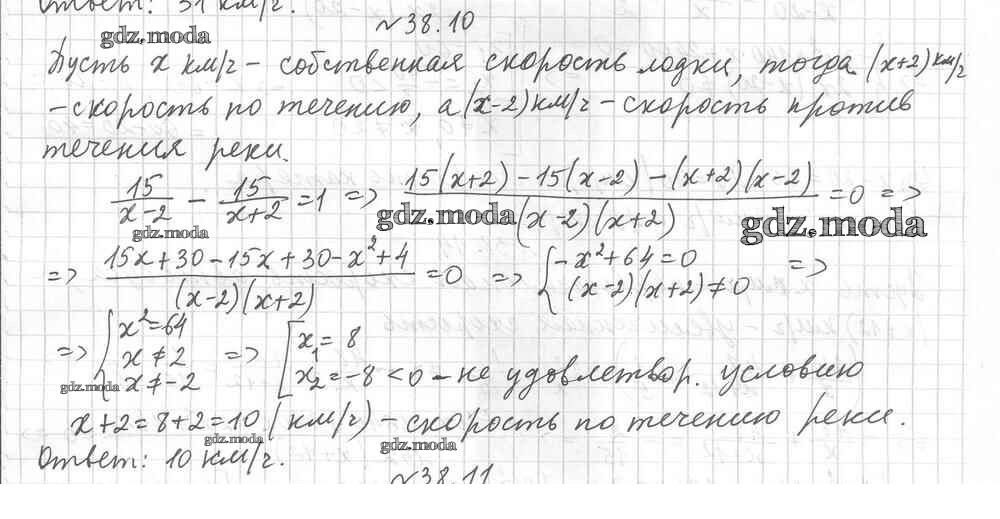 Ответ: 31 км/г.
№38.10
gdz.moda
Пусть x км/г - собственная скорость лодки, тогда (x+2) км/г
- скорость по течению, а (x-2) км/г - скорость против
течения реки.
15/(x-2) - 15/(x+2) = 1 => (15(x+2) - 15(x-2) - (x+2)(x-2))/((x-2)(x+2)) = 0 =>
gdz.moda gdz.moda gdz.moda
=> (15x+30-15x+30-x²+4)/((x-2)(x+2)) = 0 => { -x²+64=0 (x-2)(x+2)≠0 =>
=> { x²=64 x≠2 x≠-2 => [ x₁=8 x₂=-8<0 - не удовлетвор. условию
gdz.moda
x+2=8+2=10 (км/г) - скорость по течению реки.
gdz.moda gdz.moda
Ответ: 10 км/г.
№38.11